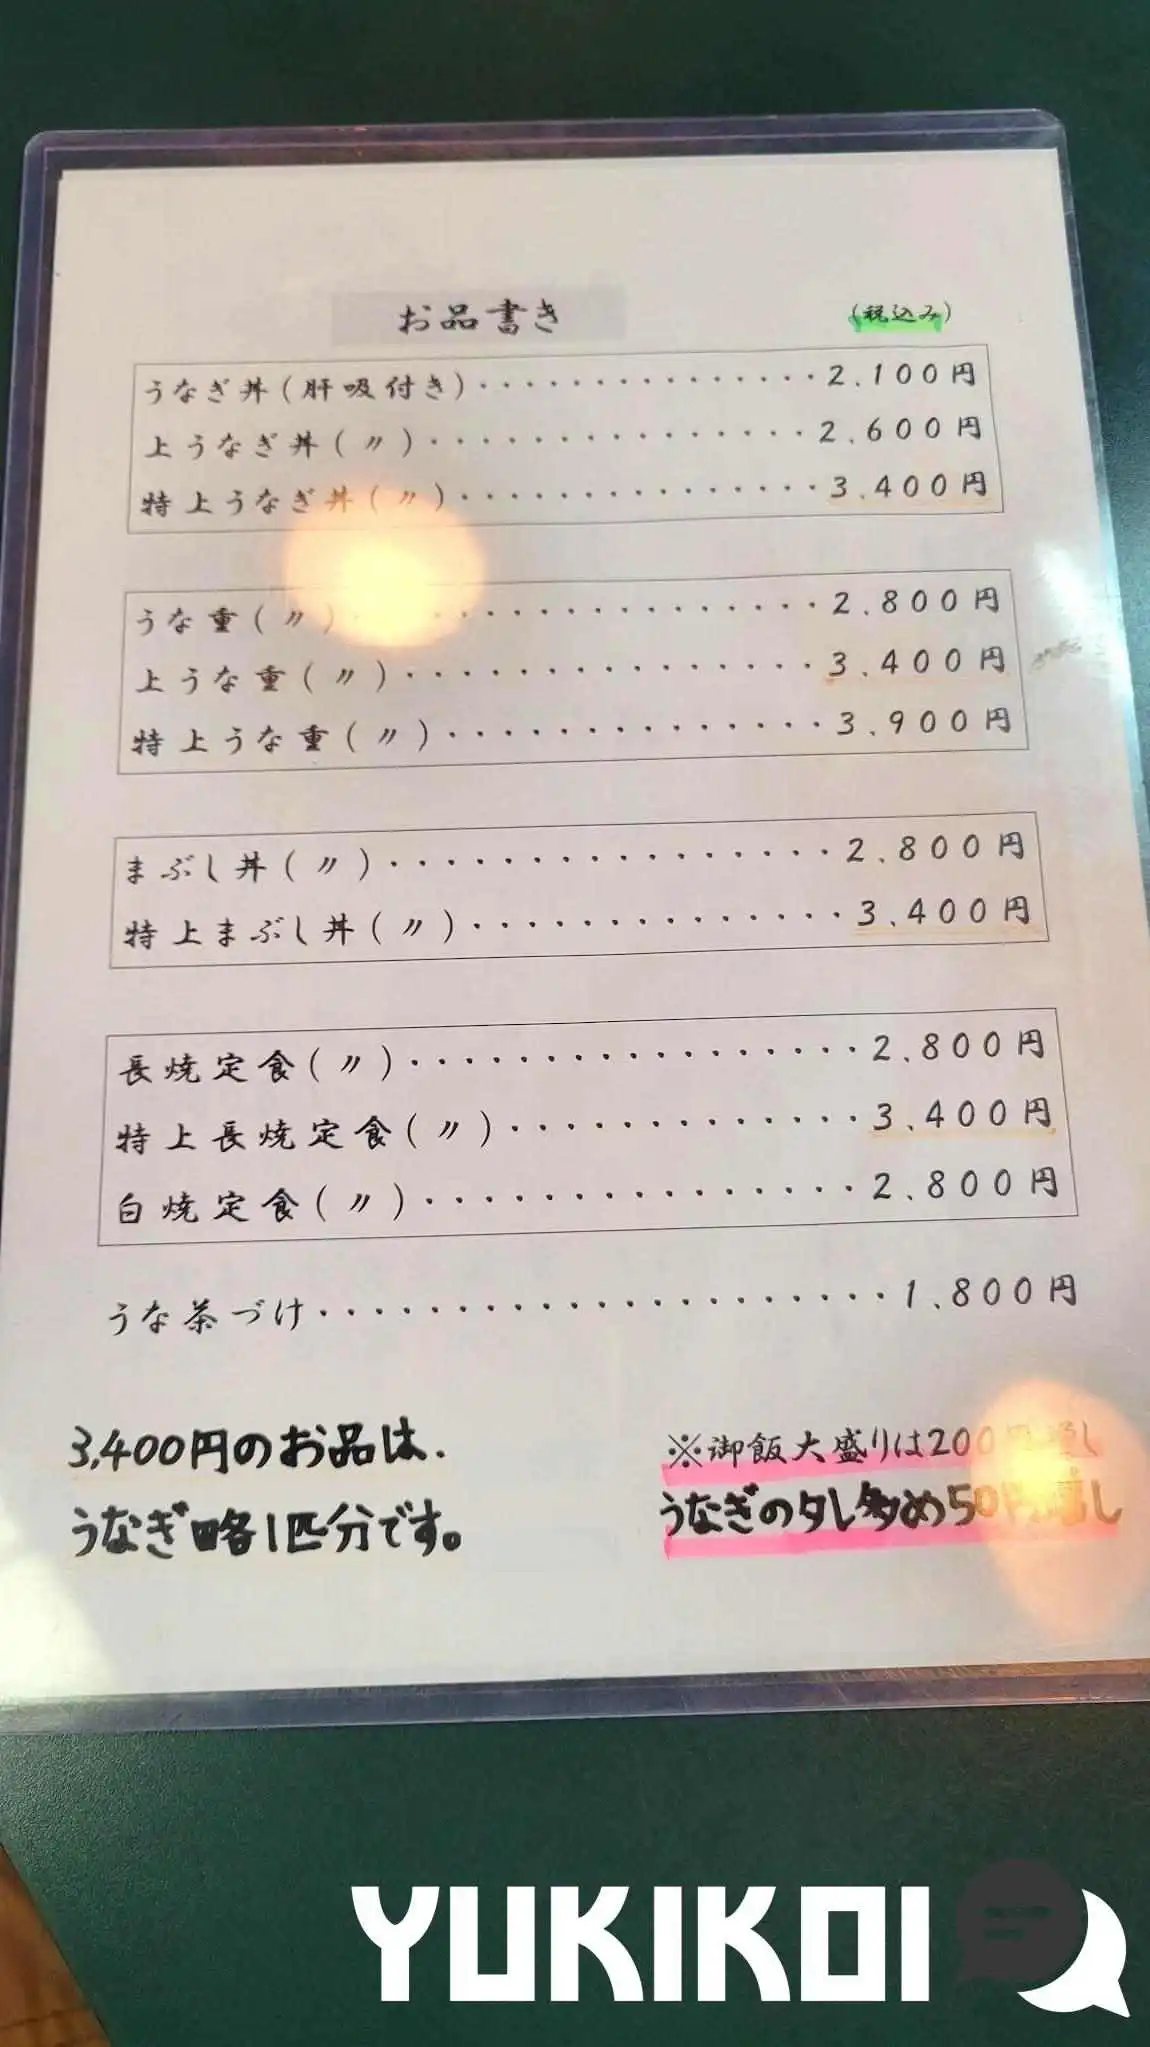 お品書き
(税込み)
うなぎ丼(肝吸付き)・・・・・・・・・・・・・・2.100円
上うなぎ丼(〃)・・・・・・・・・・・・・・2.600円
特上うなぎ丼(〃)・・・・・・・・・・・・・3.400円
うな重(〃)・・・・・・・・・・・・・・・2.800円
上うな重(〃)・・・・・・・・・・・・・・・3.400円
特上うな重(〃)・・・・・・・・・・・・・・3.900円
まぶし丼(〃)・・・・・・・・・・・・・・・・2.800円
特上まぶし丼(〃)・・・・・・・・・・・・・・3.400円
長焼定食(〃)・・・・・・・・・・・・・・・・2.800円
特上長焼定食(〃)・・・・・・・・・・・・・3.400円
白焼定食(〃)・・・・・・・・・・・・・・・・2.800円
うな茶づけ・・・・・・・・・・・・・・・・・・・・・1.800円
3,400円のお品は、
うなぎ略1匹分です。
※御飯大盛りは200円増し
うなぎのタレ多め50円増し
YUKIKOI